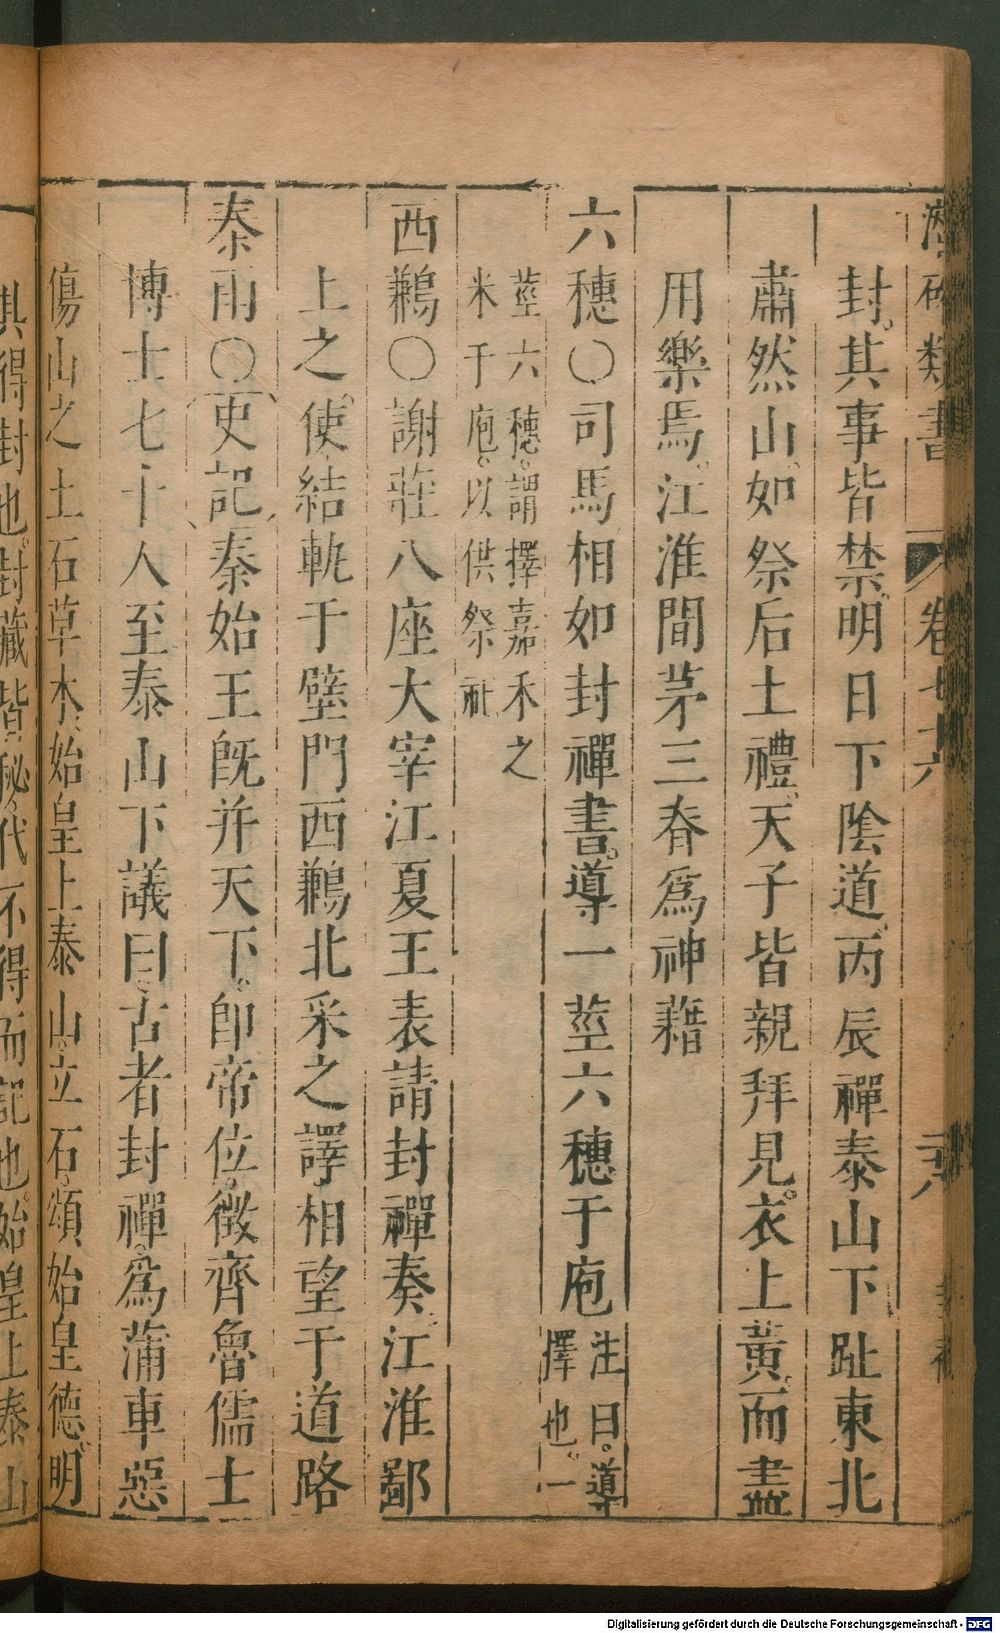 類書 卷 六
封。其事皆禁。明日下陰道。丙辰禪泰山下阯東北
肅然山。如祭后土禮。天子皆親拜見。衣上黃。而盡
用樂焉。江淮間茅三脊爲神藉
六穗〇司馬相如封禪書。導一莖六穗于庖 注曰。導擇也。一
莖六穗。謂擇嘉禾之米于庖。以供祭祀
西鶼〇謝莊八座大宰江夏王表請封禪奏。江淮鄙
上之。使結軌于壁門西鶼北采之譯相望于道路
泰雨〇史記秦始王既并天下。卽帝位。徵齊魯儒士
博士七十人至泰山下議曰。古者封禪。爲蒲車惡
傷山之土石草木。始皇上泰山。立石。頌始皇德。明
其得封也。封藏皆秘。代不得而記也。始皇上泰山
Digitalisierung gefördert durch die Deutsche Forschungsgemeinschaft - DFG